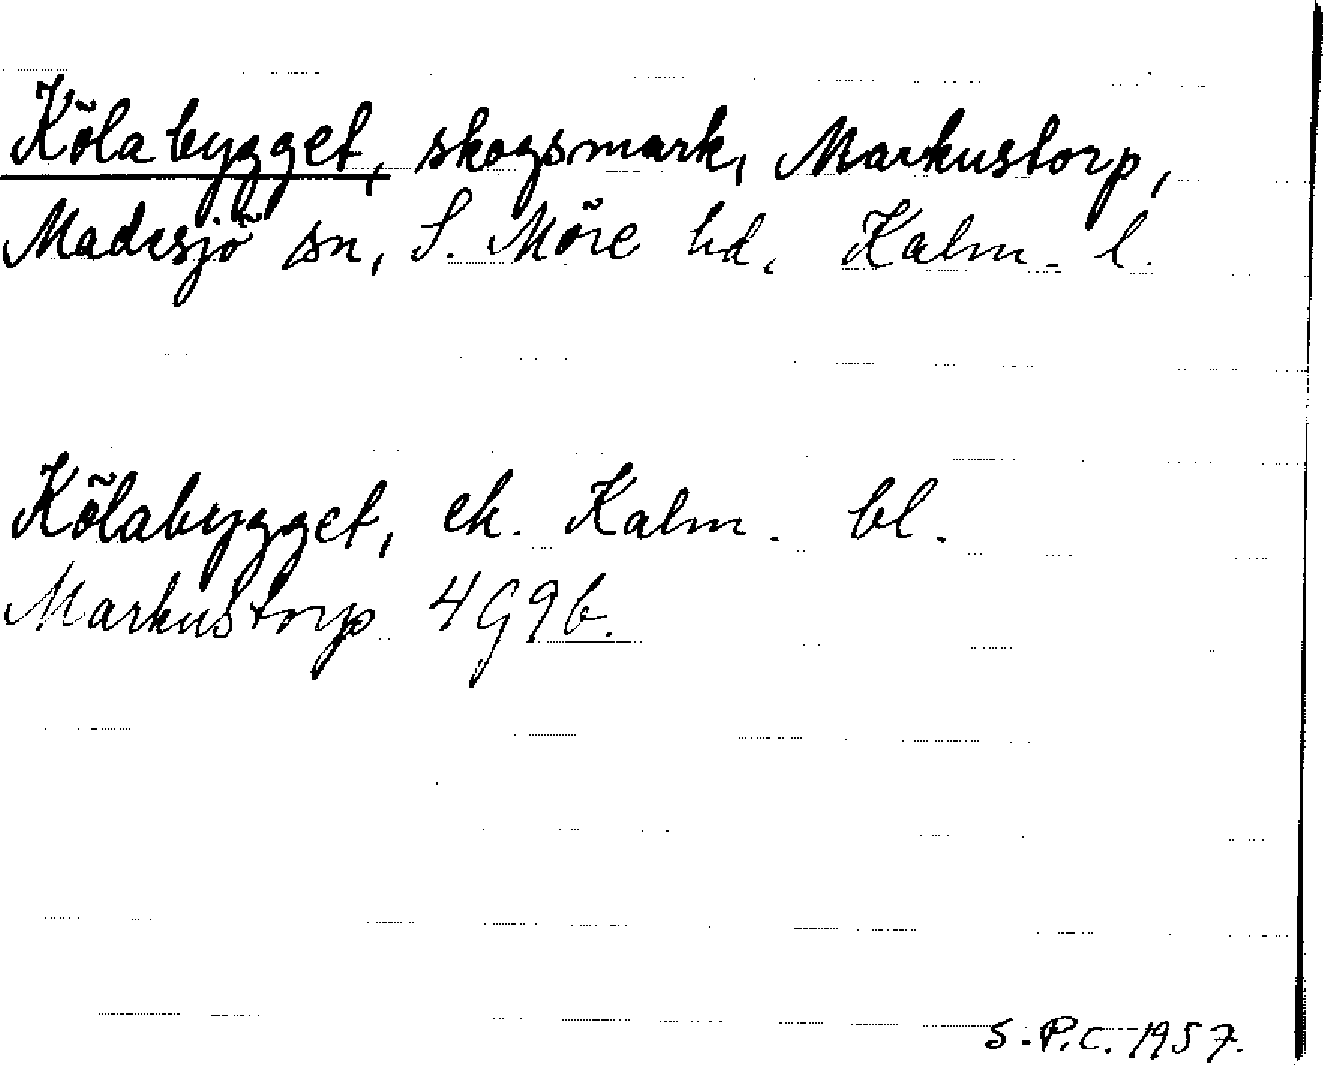 Kölabygget, skogsmark, Markustorp,
Madesjö sn, S. Möre hd, Kalm. l.
Kölabygget, ek. Kalm. bl.
Markustorp 4G9b.
S.P.C. 1957.